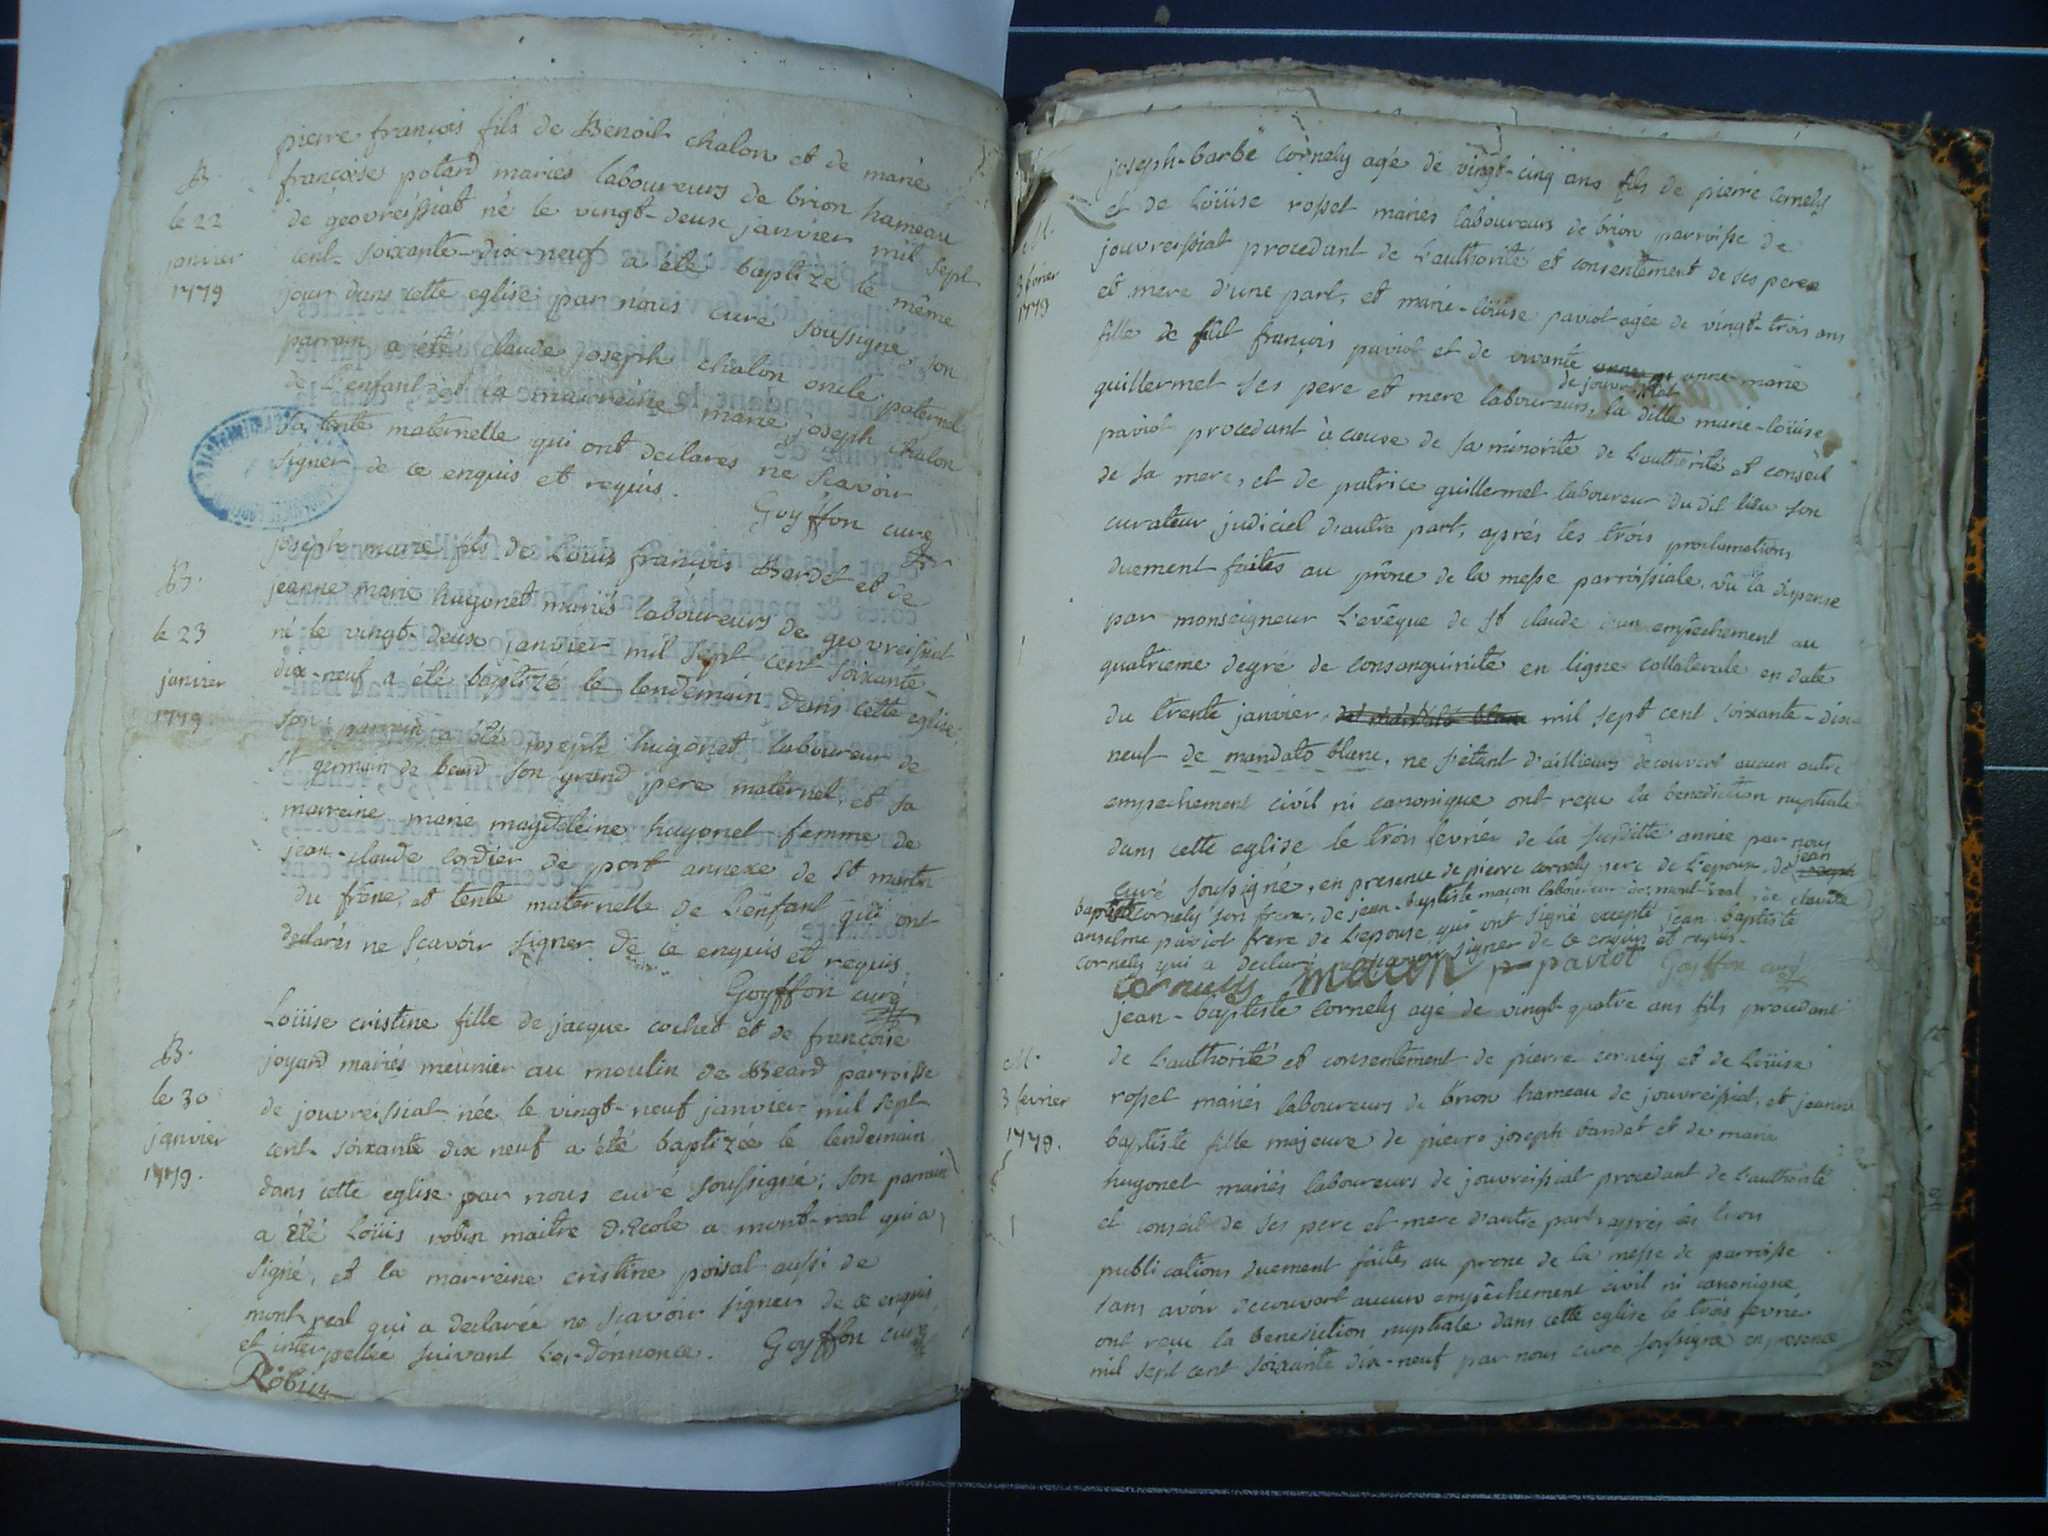 pierre françois fils de Benoit chalon et de marie
B.
françoises potard mariés laboureurs de brion hameau
le 22
de geovreissiat né le vingt-deux janvier mil sept
janvier
cent-soixante-dix-neuf a été baptizé le même
1779
jour dans cette eglise par nous curé soussigné, son
parrain a été claude joseph chalon oncle paternel
de L'enfant et la marreine marie joseph chalon
sa tente maternelle qui ont declarés ne scavoir
signer de ce enquis et requis.
Goyffon curé
joseph marie fils de Louis françois Bardet et de
B.
jeanne marie hugonet mariés laboureurs de geovreissiat
le 23
né le vingt-deux janvier mil sept cent soixante-
janvier
dix-neuf a été baptizé le lendemain dans cette eglise,
1779
son parrain a été joseph hugonet laboureur de
St germain de beard son grand pere maternel, et sa
marreine marie magdeleine hugonet femme de
jean-claude cordier de port annexe de St martin
du frêne, et tente maternelle de L'enfant qui ont
declarés ne scavoir signer de ce enquis et requis.
Goyffon curé
Loüise cristine fille de jacque cochet et de françoise
B.
joyard mariés meunier au moulin de Beard parroisse
le 30
de jouvreissiat née le vingt-neuf janvier mil sept
janvier
cent-soixante dix neuf a été baptizée le lendemain
1779.
dans cette eglise par nous curé soussigné; son parrain
a été Loüis robin maitre d'Ecole a mont-real qui a
signé, et la marreine cristine poisat aussi de
mont-real qui a declarée ne scavoir signer de ce enquis
et interpellée suivant L'or-donnance. Goyffon curé
Robin
joseph-barbe cornely agé de vingt-cinq ans fils de pierre cornely
M.
et de Loüise rosset mariés laboureurs de brion parroisse de
3 fevrier
jouvreissiat procedant de L'authorité et consentement de ses pere
1779
et mere d'une part, et marie-loüise paviot agée de vingt-trois ans
fille de fût françois paviot et de vivante anne-marie
guillermet ses pere et mere laboureurs de jouvreissiat, la ditte marie-loüise
paviot procedant à cause de sa minorité de L'authorité et conseil
de sa mere, et de patrice guillermet laboureur du dit lieu son
curateur judiciel d'autre part, aprés les trois proclamations
duement faites au prône de la messe parroissiale, vû la dispense
par monseigneur L'evêque de St claude d'un empêchement au
quatrieme degré de consanguinité en ligne collaterale en date
du trente janvier de mandato blanc mil sept cent soixante-dix-
neuf de mandato blanc, ne s'étant d'aillieurs decouvert aucun autre
empechement civil ni canonique ont reçu la benediction nuptiale
dans cette eglise le trois fevrier de la susditte année par nous
curé soussigné, en presence de pierre cornely pere de L'epoux, de jean
baptiste cornely son frere, de jean-baptiste maçon laboureur de mont-real, de claude
anselme paviot frere de L'epouse qui ont signé excepté jean baptiste
cornely qui a declaré ne scavoir signer de ce enquis et requis.
cornely macon p paviot Goyffon curé
jean-baptiste cornely agé de vingt-quatre ans fils procedant
M.
de L'authorité et consentement de pierre cornely et de Loüise
3 fevrier
rosset mariés laboureurs de brion hameau de jouvreissiat, et jeanne
1779.
baptiste fille majeure de pierre joseph bardet et de marie
hugonet mariés laboureurs de jouvreissiat procedant de L'authorité
et conseil de ses pere et mere d'autre part, aprés les trois
publications duement faites au prone de la messe de parroisse
sans avoir decouvert aucun empêchement civil ni canonique
ont reçu la benediction nuptiale dans cette eglise le trois fevrié
mil sept cent soixante dix-neuf par nous curé soussigné en presence